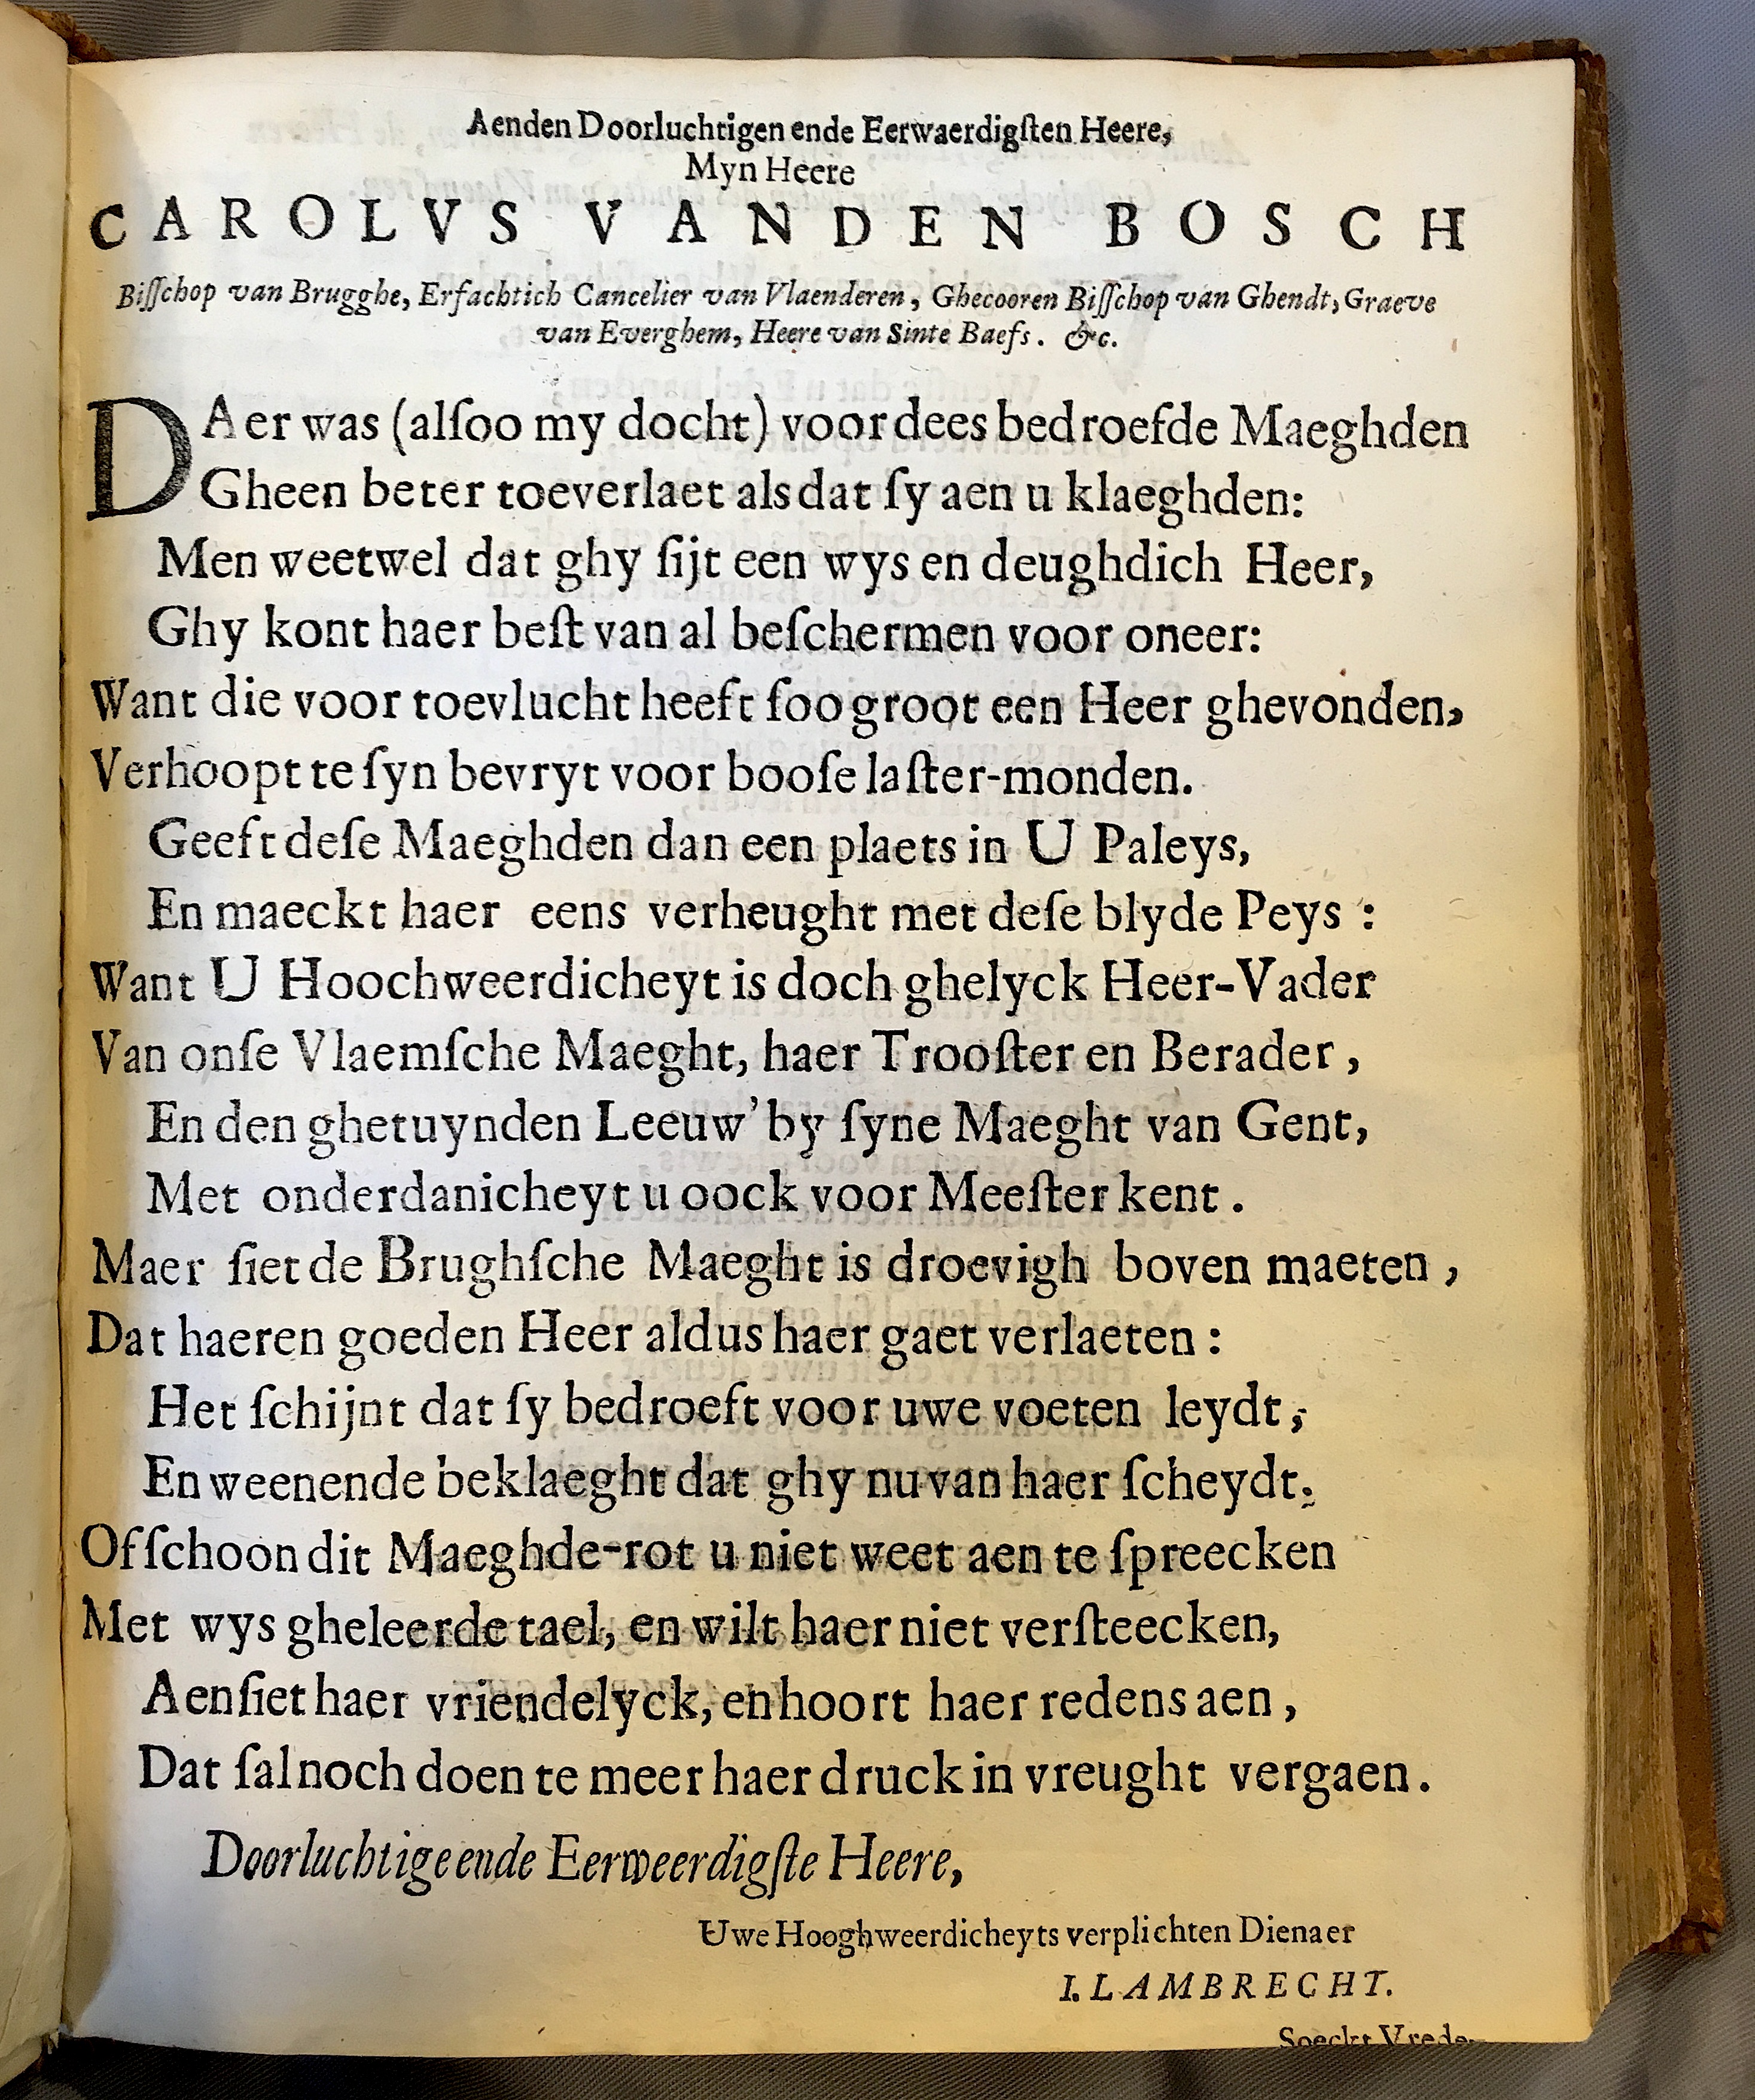 Aenden Doorluchtigen ende Eerwaerdigſten Heere,
Myn Heere
CAROLVS VANDEN BOSCH
Biſſchop van Brugghe, Erfachtich Cancelier van Vlaenderen, Ghecooren Biſſchop van Ghendt, Graeve
van Everghem, Heere van Sinte Baefs. &c.
DAer was (alſoo my docht) voor dees bedroefde Maeghden
Gheen beter toeverlaet als dat ſy aen u klaeghden:
Men weet wel dat ghy ſijt een wys en deughdich Heer,
Ghy kont haer beſt van al beſchermen voor oneer:
Want die voor toevlucht heeft ſoo groot een Heer ghevonden,
Verhoopt te ſyn bevryt voor booſe laſter-monden.
Geeft deſe Maeghden dan een plaets in U Paleys,
En maeckt haer eens verheught met deſe blyde Peys :
Want U Hoochweerdicheyt is doch ghelyck Heer-Vader
Van onſe Vlaemſche Maeght, haer Trooſter en Berader ,
En den ghetuynden Leeuw' by ſyne Maeght van Gent,
Met onderdanicheyt u oock voor Meeſter kent .
Maer ſiet de Brughſche Maeght is droevigh boven maeten ,
Dat haeren goeden Heer aldus haer gaet verlaeten :
Het ſchijnt dat ſy bedroeft voor uwe voeten leydt,
En weenende beklaeght dat ghy nu van haer ſcheydt.
Of ſchoon dit Maeghde-rot u niet weet aen te ſpreecken
Met wys gheleerde tael, en wilt haer niet verſteecken,
Aenſiet haer vriendelyck, en hoort haer redens aen ,
Dat ſal noch doen te meer haer druck in vreught vergaen.
Doorluchtige ende Eerweerdigſte Heere,
Uwe Hooghweerdicheyts verplichten Dienaer
I. LAMBRECHT.
Soeckt Vrede-